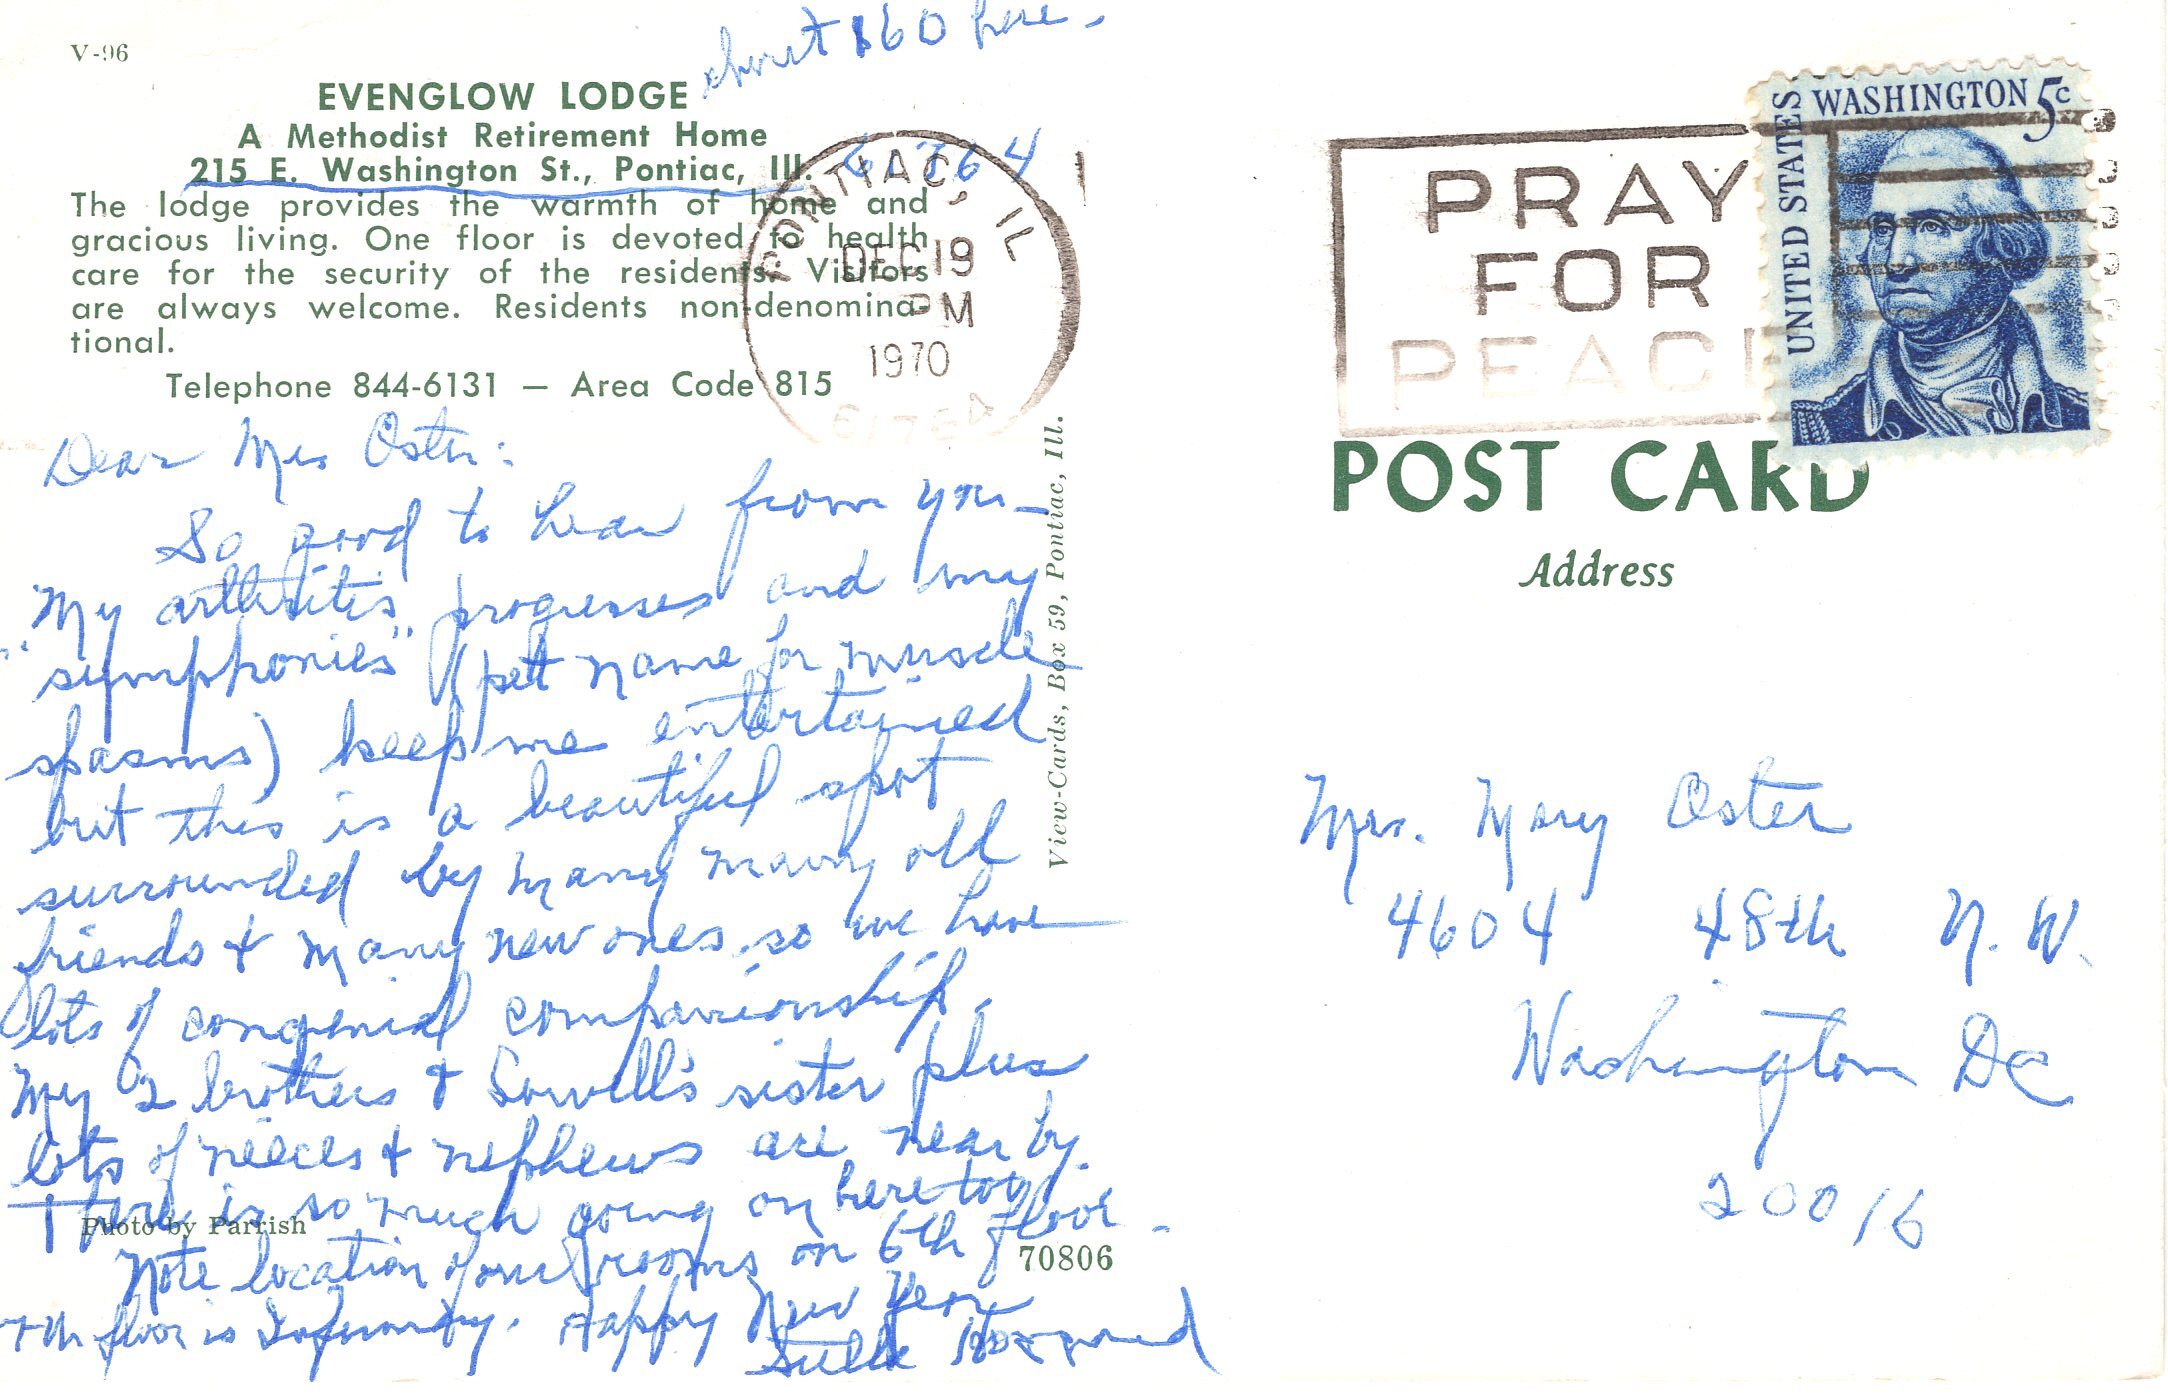 V-96
about 160 here.
EVENGLOW LODGE
A Methodist Retirement Home
215 E. Washington St., Pontiac, Ill. 61764
The lodge provides the warmth of home and
gracious living. One floor is devoted to health
care for the security of the residents. Visitors
are always welcome. Residents non-denomina-
tional.
Telephone 844-6131 — Area Code 815
PONTIAC, IL
DEC 19
PM
1970
61764
Dear Mrs Oster:
So good to hear from you—
My arthritis progresses and my
"symphonies" (pet name for muscle
spasms) keep me entertained
but this is a beautiful spot
surrounded by many many old
friends & many new ones so we have
lots of congenial companionship.
My 2 brothers & Sowell's sister plus
lots of neices & nephews are near by.
There is so much going on here too
Note location of our rooms on 6th floor -
7th floor is Infirmary. Happy New Year
Photo by Parrish
70806
View-Cards, Box 59, Pontiac, Ill.
PRAY
FOR
PEACE
UNITED STATES
WASHINGTON 5c
POST CARD
Address
Mrs. Mary Oster
4604 48th N. W.
Washington DC
20016